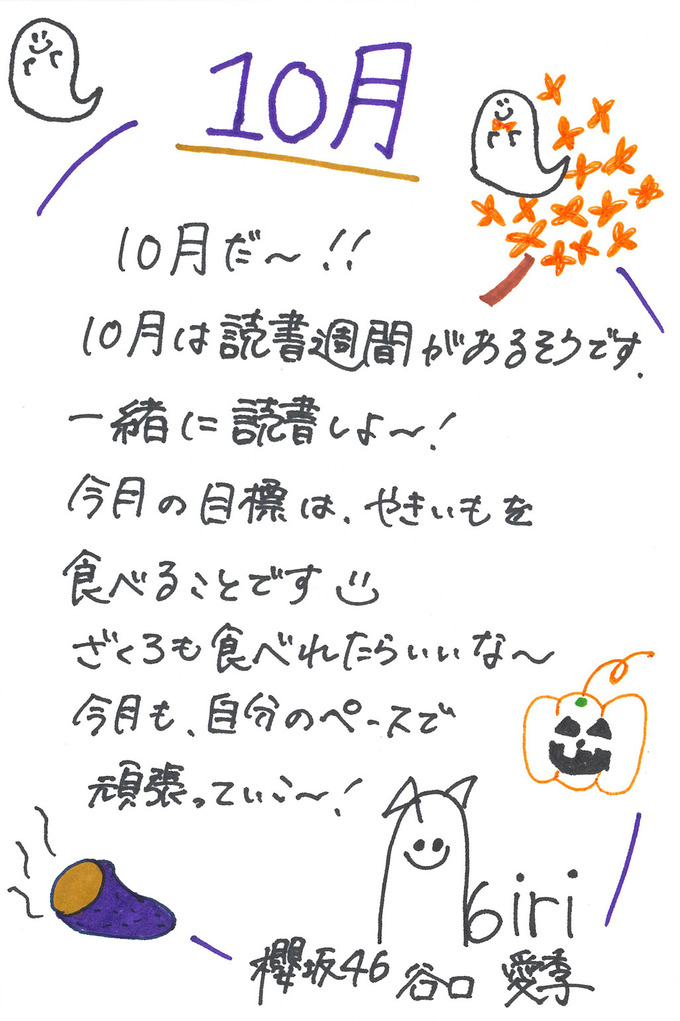 10月
10月だ〜!!
10月は読書週間があるそうです.
一緒に読書しよ〜!
今月の目標は、やきいもを
食べることです
ざくろも食べれたらいいな〜
今月も、自分のペースで
頑張っていこ〜!
airi
櫻坂46 谷口 愛季